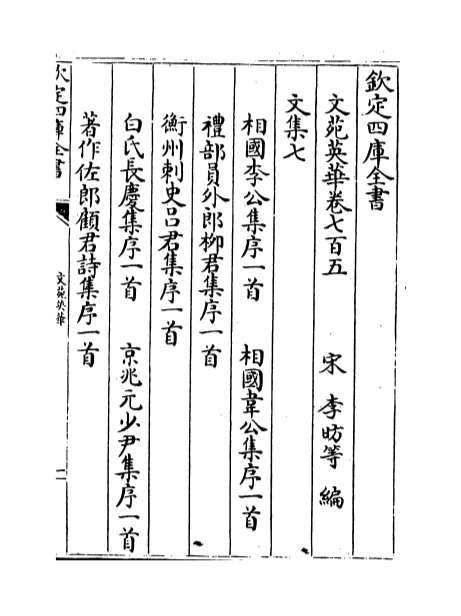 欽定四庫全書
文苑英華卷七百五　宋　李昉等　編
文集七
相國李公集序一首　相國韋公集序一首
禮部員外郎柳君集序一首
衡州刺史吕君集序一首
白氏長慶集序一首　京兆元少尹集序一首
著作佐郎顧君詩集序一首
欽定四庫全書
文苑英華